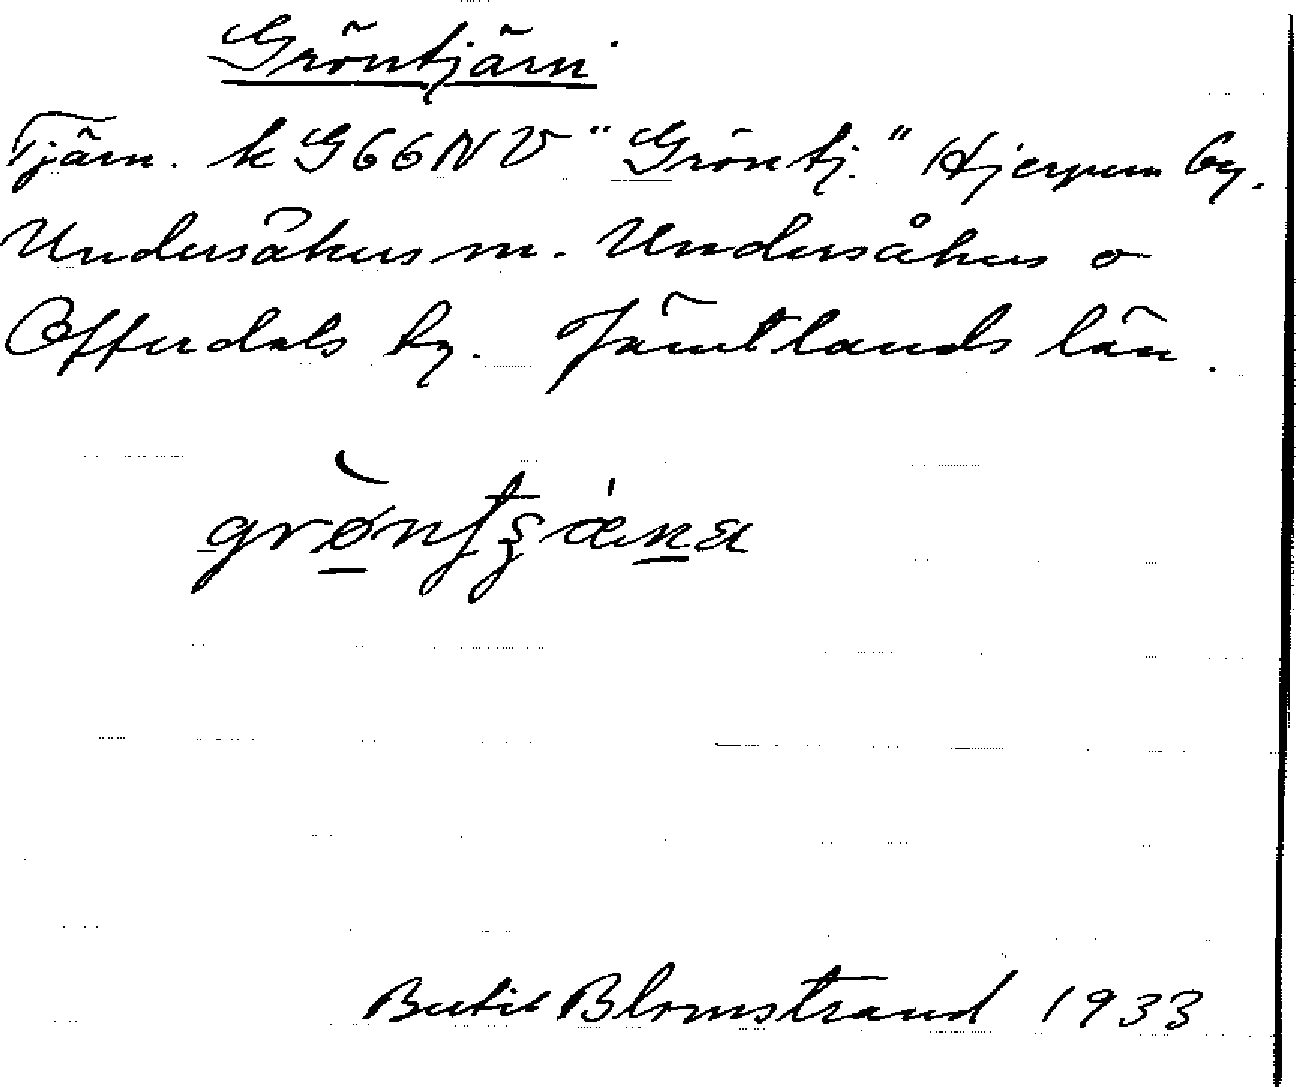 Gröntjärn
Tjärn. k G66NV "Gröntj." Hjerpen by.
Undersåkers sn. Undersåkers o
Offerdals tg. Jämtlands län.
Bertil Blomstrand 1933